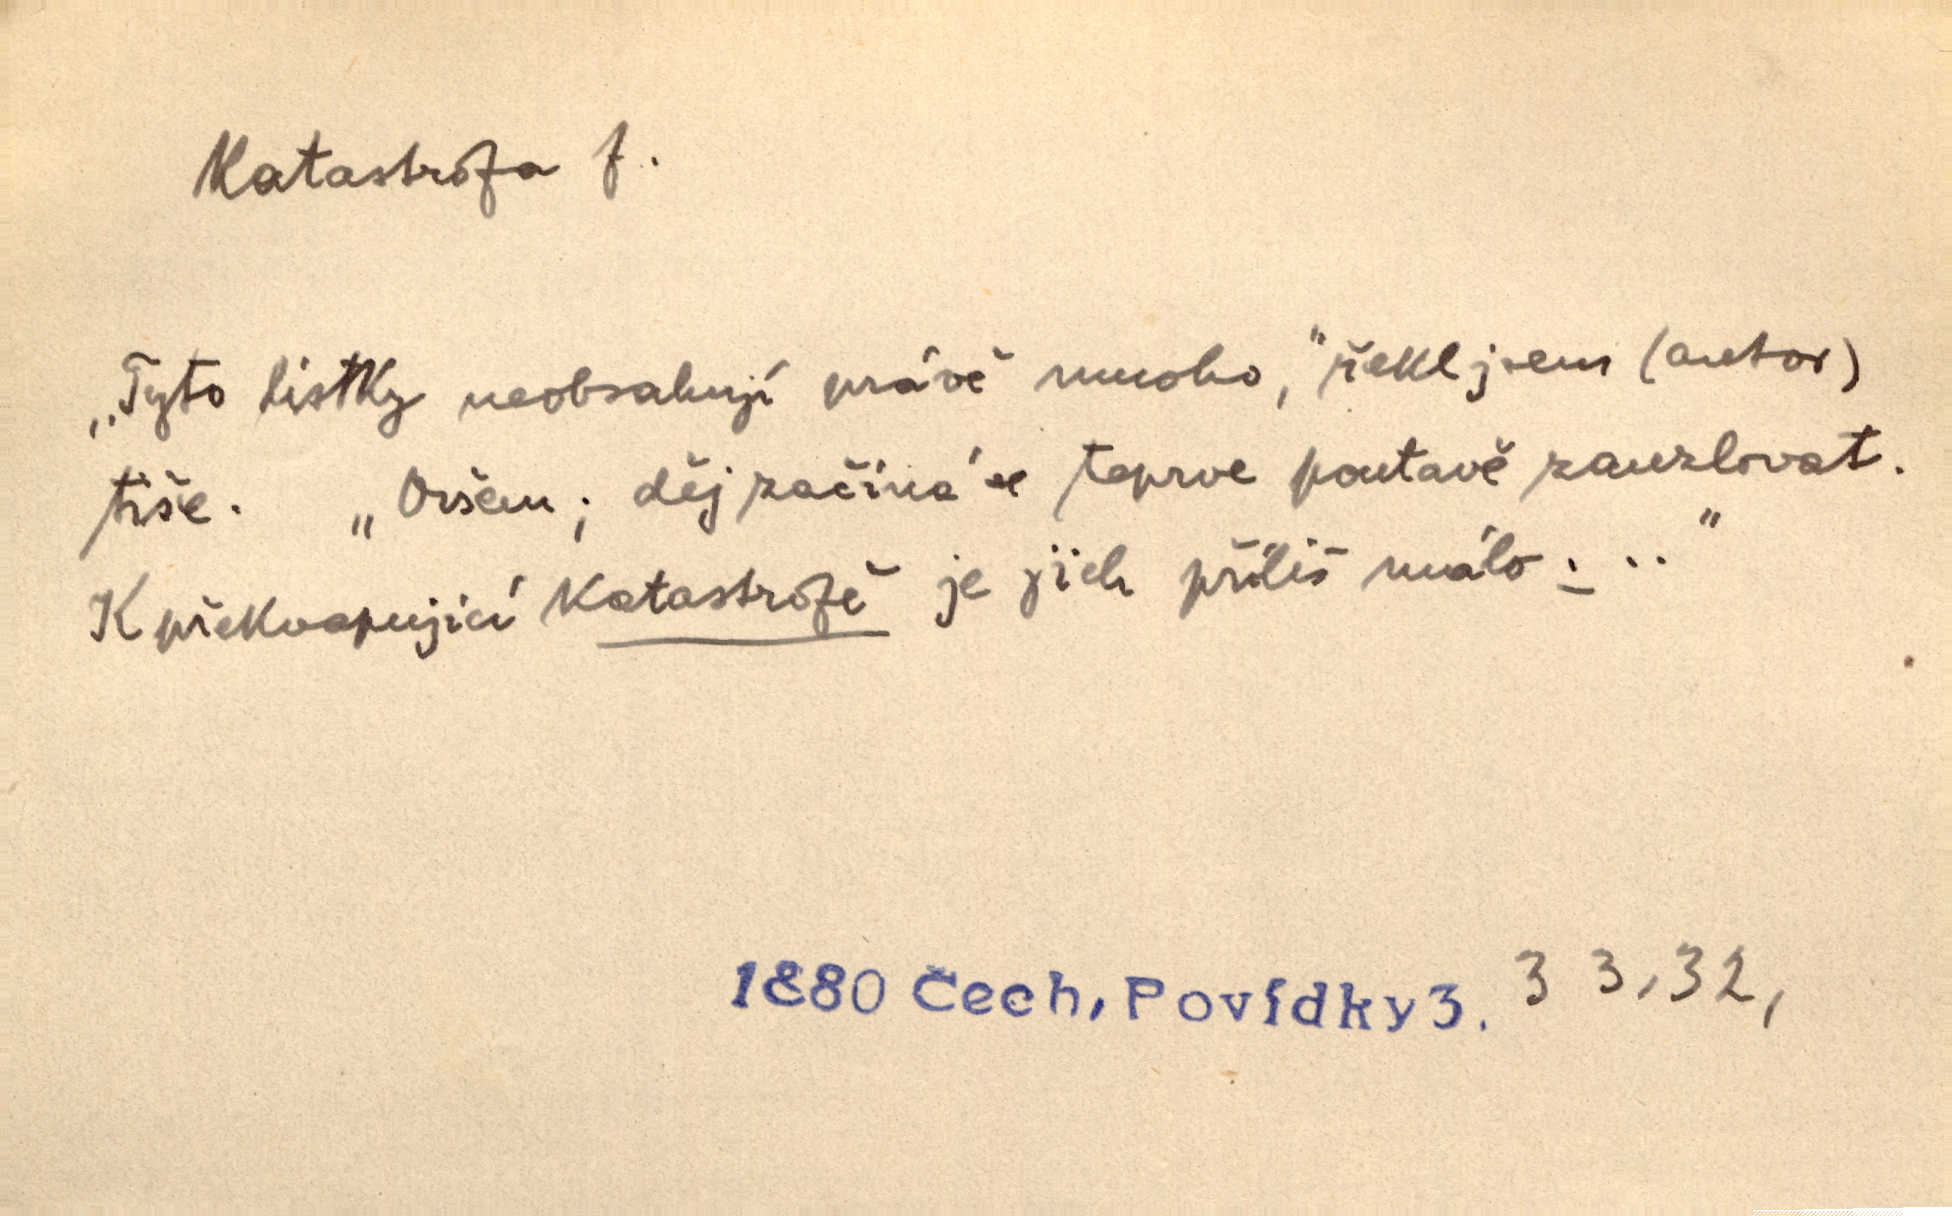 Katastrofa f.
„Tyto lístky neobsahují právě mnoho,“ řekl jsem (autor)
tiše. „Ovšem; děj začíná se teprve poutavě zauzlovat.
K překvapující katastrofě je jich příliš málo ...“
1880 Čech, Povídky 3. 3 3,32,